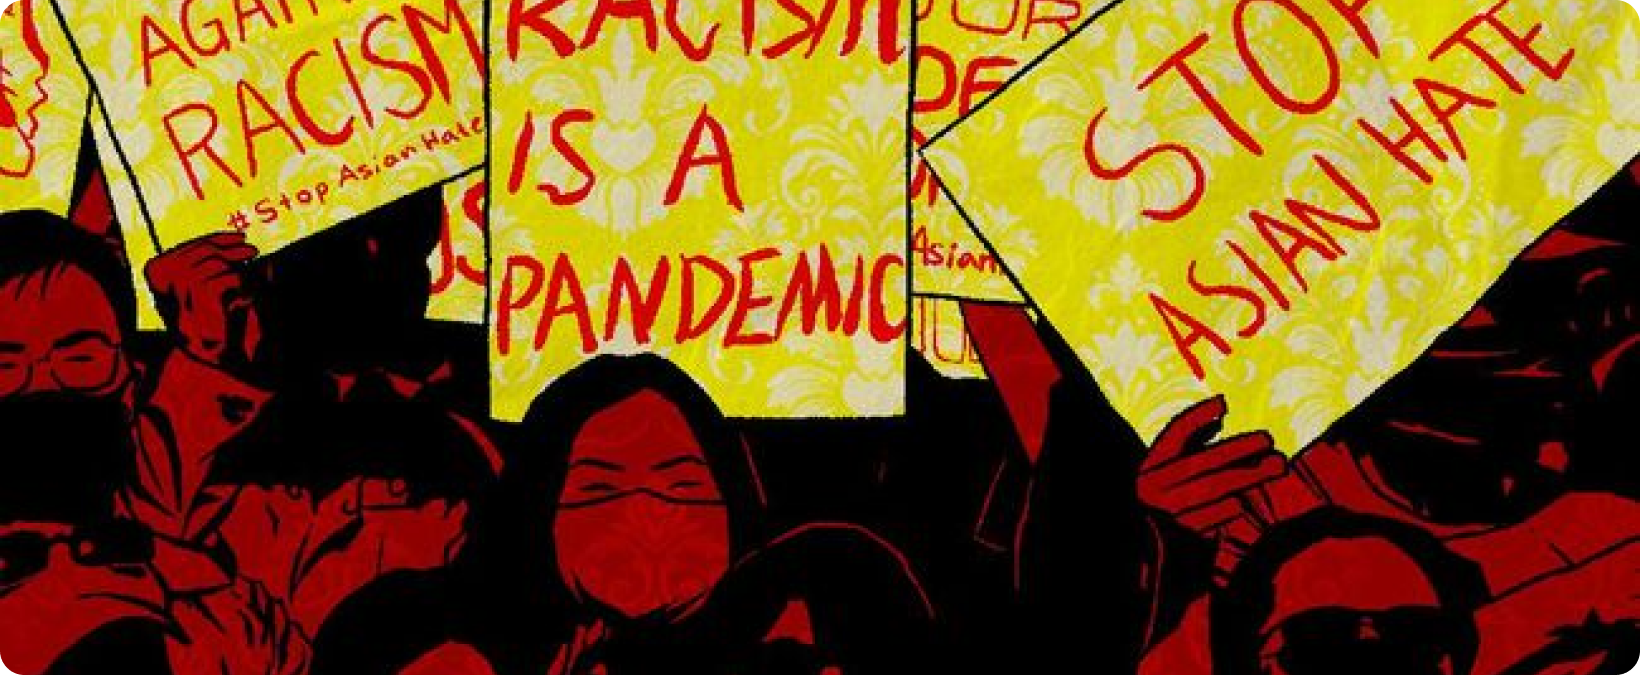 AGAIN
RACISM
#StopAsianHate
RACISM
IS A
PANDEMIC
OUR
Asian
STOP
ASIAN HATE